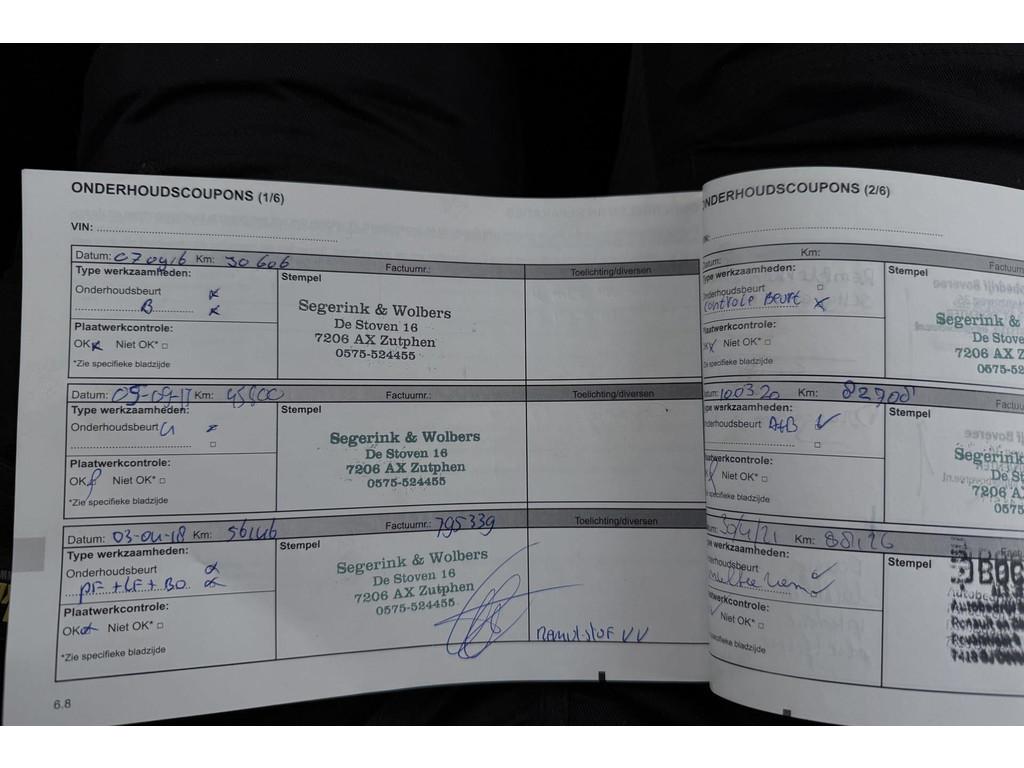 ONDERHOUDSCOUPONS (1/6)
VIN:
Datum: 070916 Km: 30606 Factuurnr.: Toelichting/diversen
Type werkzaamheden:
Stempel
Onderhoudsbeurt
B
Plaatwerkcontrole:
OK Niet OK*
*Zie specifieke bladzijde
Segerink & Wolbers
De Stoven 16
7206 AX Zutphen
0575-524455
Datum: 05-09-17 Km: 45800 Factuurnr.: Toelichting/diversen
Type werkzaamheden:
Stempel
Onderhoudsbeurt
Plaatwerkcontrole:
OK Niet OK*
*Zie specifieke bladzijde
Segerink & Wolbers
De Stoven 16
7206 AX Zutphen
0575-524455
Datum: 03-04-18 Km: 56146 Factuurnr.: 795339 Toelichting/diversen
Type werkzaamheden:
Stempel
Onderhoudsbeurt
PF + LF + BO
Plaatwerkcontrole:
OK Niet OK*
*Zie specifieke bladzijde
Segerink & Wolbers
De Stoven 16
7206 AX Zutphen
0575-524455
Remvloeistof VV
6.8
ONDERHOUDSCOUPONS (2/6)
Datum: Km: Factuu
Type werkzaamheden:
Stempel
Onderhoudsbeurt
Controle Beurt
Plaatwerkcontrole:
Niet OK*
Zie specifieke bladzijde
Segerink &
De Stove
7206 AX Z
0575-52
Datum: 10.03.20 Km: 82700 Factuu
Type werkzaamheden:
Stempel
Onderhoudsbeurt A+B
Plaatwerkcontrole:
Niet OK*
specifieke bladzijde
Segerink
De St
7206 A
0575
30/4/21 Km: 88126
werkzaamheden:
Stempel
Onderhoudsbeurt
Plaatwerkcontrole:
Niet OK*
specifieke bladzijde
BOG
Autobedr
Renault en